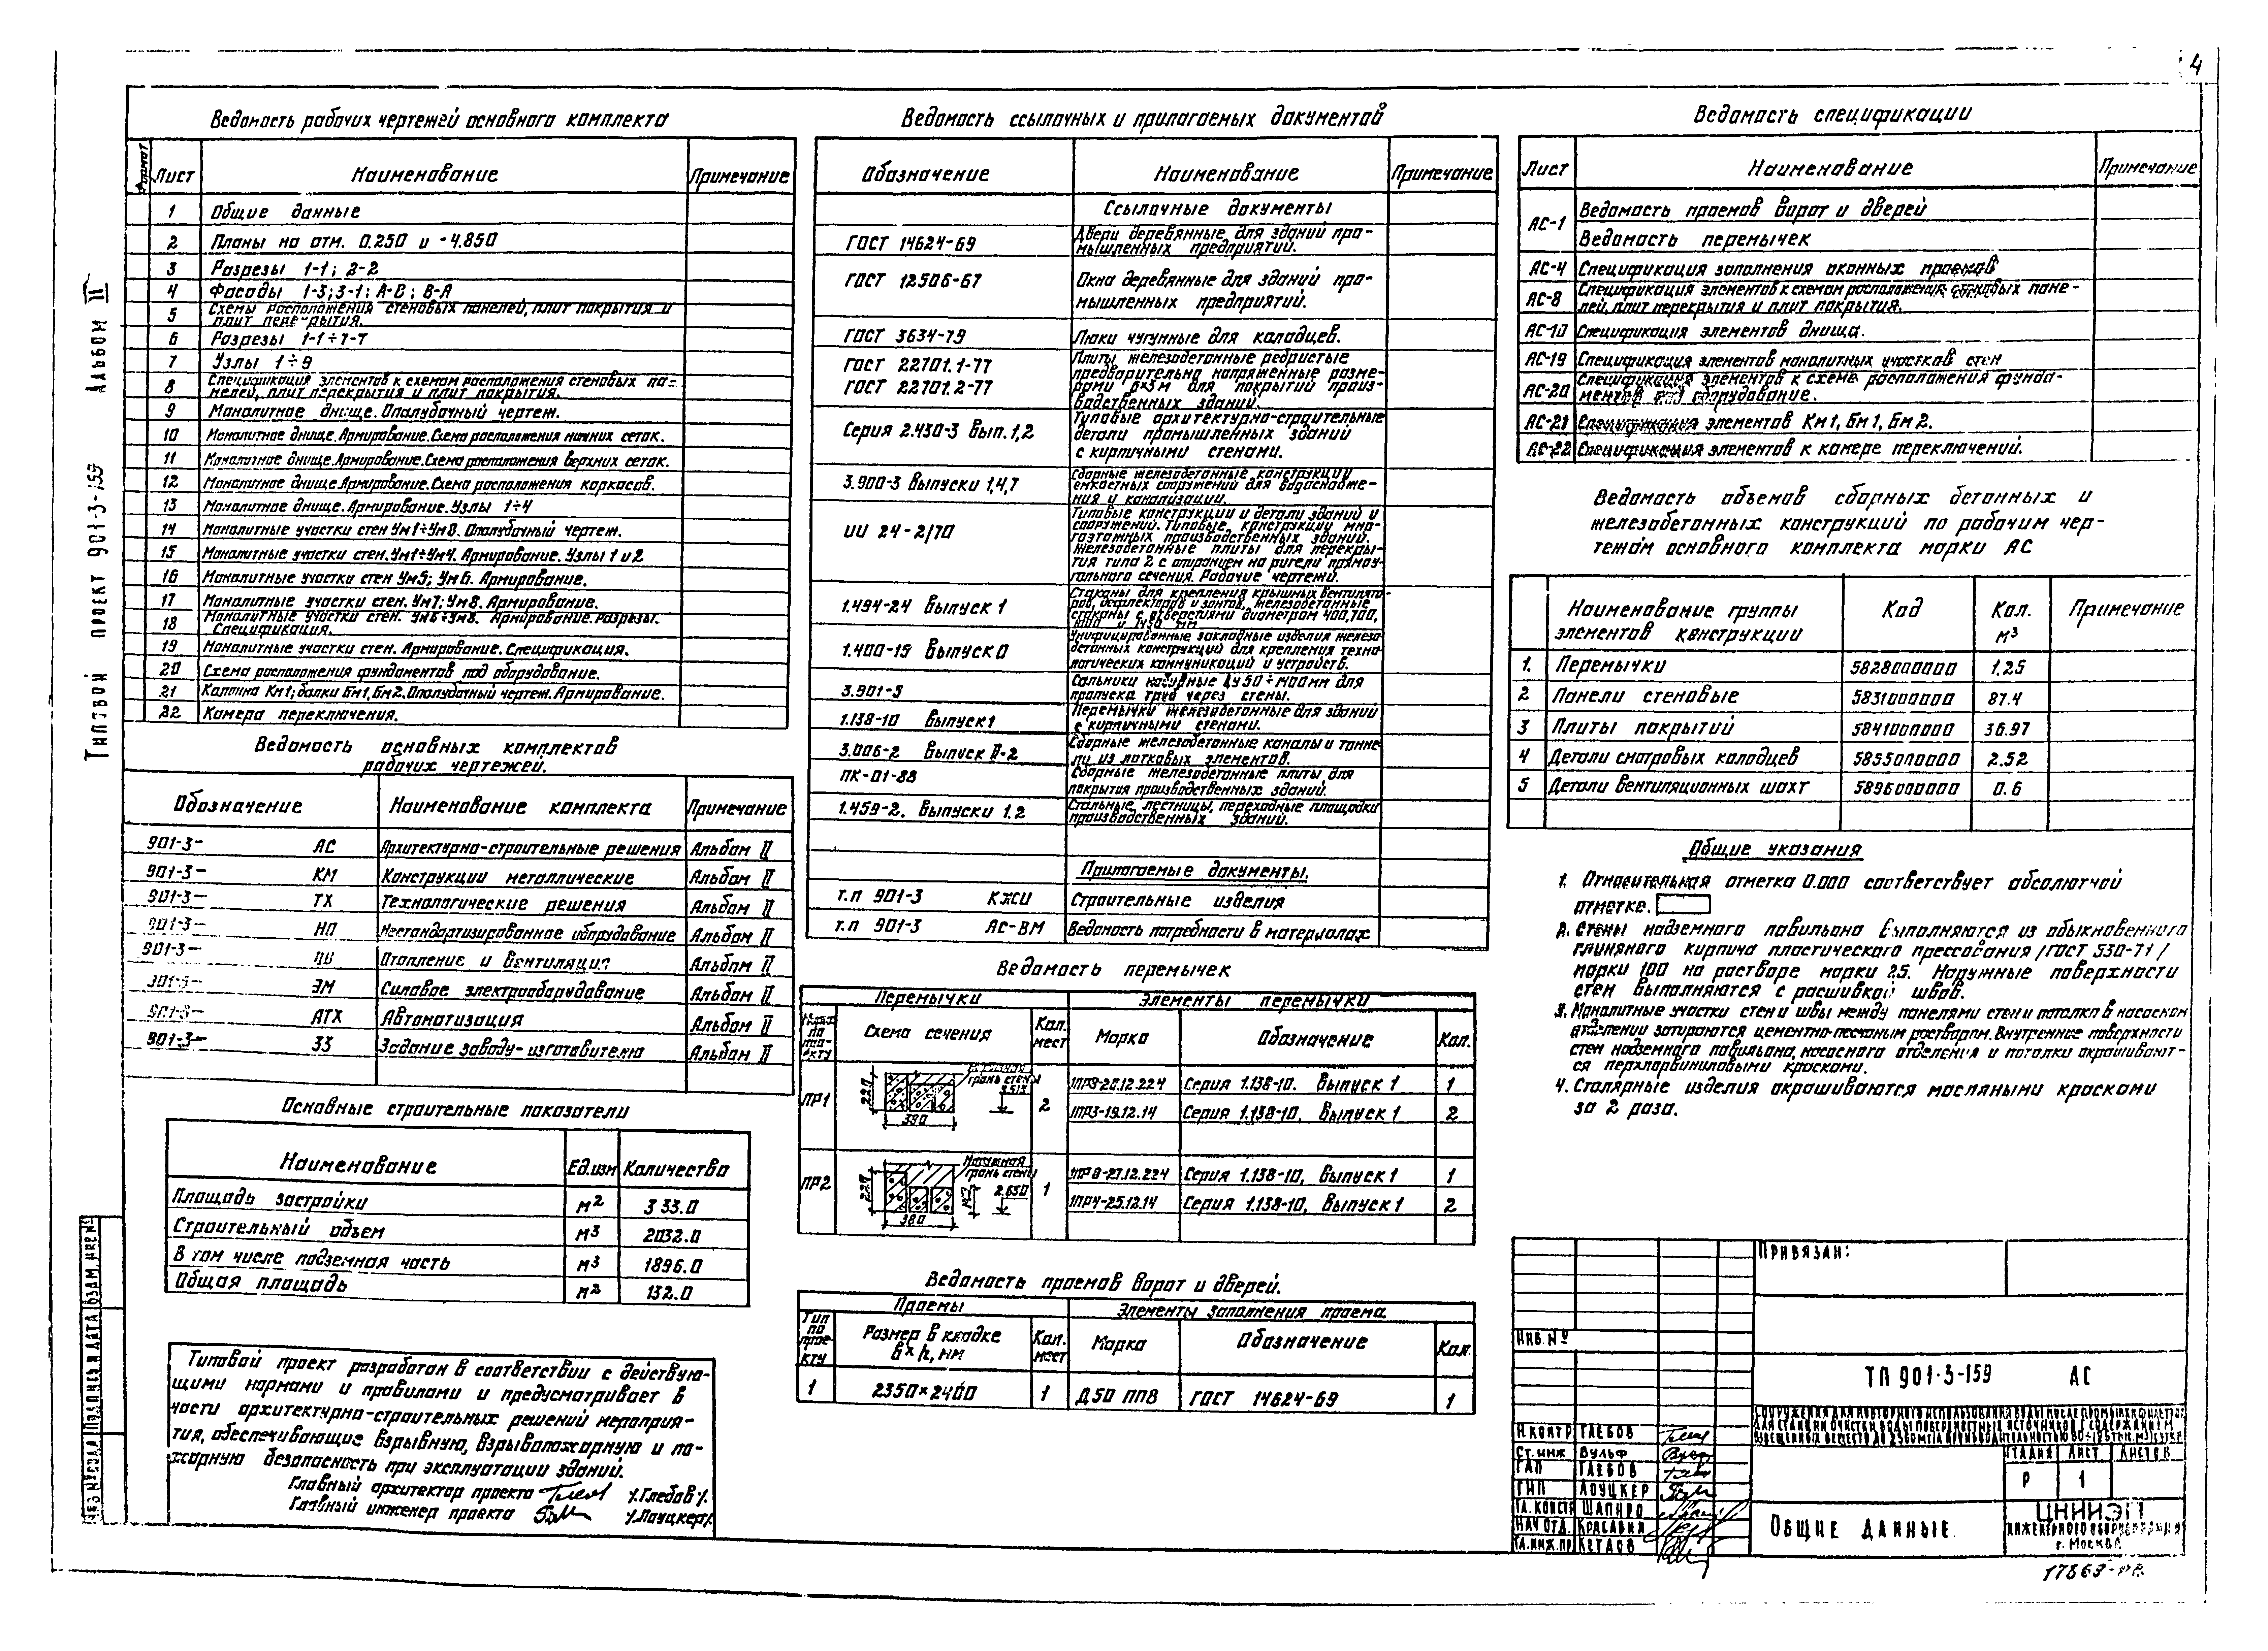 4
Альбом II
Типовой проект 901-3-159
Ведомость рабочих чертежей основного комплекта
Формат
Лист
Наименование
Примечание
1 Общие данные
2 Планы на отм. 0.250 и -4.850
3 Разрезы 1-1; 2-2
4 Фасады 1-3; 3-1; А-В; В-А
5 Схемы расположения стеновых панелей, плит покрытия и
плит перекрытия.
6 Разрезы 1-1÷7-7
7 Узлы 1÷9
8 Спецификация элементов к схемам расположения стеновых па-
нелей, плит перекрытия и плит покрытия.
9 Монолитное днище. Опалубочный чертеж.
10 Монолитное днище. Армирование. Схема расположения нижних сеток.
11 Монолитное днище. Армирование. Схема расположения верхних сеток.
12 Монолитное днище. Армирование. Схема расположения каркасов.
13 Монолитное днище. Армирование. Узлы 1÷4
14 Монолитные участки стен Ум1÷Ум8. Опалубочный чертеж.
15 Монолитные участки стен. Ум1÷Ум4. Армирование. Узлы 1 и 2
16 Монолитные участки стен Ум5; Ум6. Армирование.
17 Монолитные участки стен. Ум7; Ум8. Армирование.
18 Монолитные участки стен. Ум6÷Ум8. Армирование. Разрезы.
Спецификация.
19 Монолитные участки стен. Армирование. Спецификация.
20 Схема расположения фундаментов под оборудование.
21 Колонна Км1; балки Бм1, Бм2. Опалубочный чертеж. Армирование.
22 Камера переключения.
Ведомость основных комплектов
рабочих чертежей.
Обозначение
Наименование комплекта
Примечание
901-3- АС Архитектурно-строительные решения Альбом II
901-3- КМ Конструкции металлические Альбом II
901-3- ТХ Технологические решения Альбом II
901-3- НО Нестандартизированное оборудование Альбом II
901-3- ОВ Отопление и вентиляция Альбом II
901-3- ЭМ Силовое электрооборудование Альбом II
901-3- АТХ Автоматизация Альбом II
901-3- ЗЗ Задание заводу-изготовителю Альбом II
Основные строительные показатели
Наименование Ед.изм Количество
Площадь застройки м2 333.0
Строительный объем м3 2032.0
В том числе подземная часть м3 1896.0
Общая площадь м2 132.0
Типовой проект разработан в соответствии с действую-
щими нормами и правилами и предусматривает в
части архитектурно-строительных решений мероприя-
тия, обеспечивающие взрывную, взрывопожарную и по-
жарную безопасность при эксплуатации зданий.
Главный архитектор проекта /Глебов/.
Главный инженер проекта /Лоуцкер/.
Ведомость ссылочных и прилагаемых документов
Обозначение
Наименование
Примечание
Ссылочные документы
ГОСТ 14624-69 Двери деревянные для зданий про-
мышленных предприятий.
ГОСТ 12506-67 Окна деревянные для зданий про-
мышленных предприятий.
ГОСТ 3634-79 Люки чугунные для колодцев.
ГОСТ 22701.1-77
ГОСТ 22701.2-77
Плиты железобетонные ребристые
предварительно напряженные разме-
рами 6×3м для покрытий произ-
водственных зданий.
Серия 2.430-3 Вып.1,2 Типовые архитектурно-строительные
детали промышленных зданий
с кирпичными стенами.
3.900-3 Выпуски 1,4,7 Сборные железобетонные конструкции
емкостных сооружений для водоснабже-
ния и канализации.
ИИ 24-2/70 Типовые конструкции и детали зданий и
сооружений. Типовые конструкции мно-
гоэтажных производственных зданий.
Железобетонные плиты для перекры-
тия типа 2 с опиранием на ригели прямоу-
гольного сечения. Рабочие чертежи.
1.494-24 Выпуск 1 Стаканы для крепления крышных вентилято-
ров, дефлекторов и зонтов. Железобетонные
стаканы с отверстиями диаметром 400, 700,
1000 и 1450 мм
1.400-15 Выпуск 0 Унифицированные закладные изделия железо-
бетонных конструкций для крепления техно-
логических коммуникаций и устройств.
3.901-5 Сальники набивные Ду50÷1400мм для
пропуска труб через стены.
1.138-10 Выпуск 1 Перемычки железобетонные для зданий
с кирпичными стенами.
3.006-2 Выпуск II-2 Сборные железобетонные каналы и тонне-
ли из лотковых элементов.
ПК-01-88 Сборные железобетонные плиты для
покрытия производственных зданий.
1.459-2. Выпуски 1.2 Стальные лестницы, переходные площадки
производственных зданий.
Прилагаемые документы.
т.п 901-3 КЖИ Строительные изделия
т.п 901-3 АС-ВМ Ведомость потребности в материалах
Ведомость перемычек
Перемычки
Элементы перемычки
Схема сечения
Кол. мест
Марка
Обозначение
Кол.
ПР1
220
380
грань стены
2
1ПР3-20.12.22ч Серия 1.138-10. Выпуск 1 1
1ПР3-19.12.14 Серия 1.138-10, Выпуск 1 2
ПР2
220
380
Наружная
грань стены
2.650
1
1ПР8-27.12.22ч Серия 1.138-10, Выпуск 1 1
1ПР4-25.12.14 Серия 1.138-10, Выпуск 1 2
Ведомость проемов ворот и дверей.
Проемы
Элементы заполнения проема
Тип по проекту
Размер в кладке
в×h, мм
Кол. мест
Марка
Обозначение
Кол.
1 2350×2400 1 Д50 ППВ ГОСТ 14624-69 1
Ведомость спецификации
Лист
Наименование
Примечание
АС-1 Ведомость проемов ворот и дверей
Ведомость перемычек
АС-4 Спецификация заполнения оконных проемов
АС-8 Спецификация элементов к схемам расположения стеновых пане-
лей, плит перекрытия и плит покрытия.
АС-10 Спецификация элементов днища.
АС-19 Спецификация элементов монолитных участков стен
АС-20 Спецификация элементов к схеме расположения фунда-
ментов под оборудование.
АС-21 Спецификация элементов Км1, Бм1, Бм2.
АС-22 Спецификация элементов к камере переключений.
Ведомость объемов сборных бетонных и
железобетонных конструкций по рабочим чер-
тежам основного комплекта марки АС
Наименование группы
элементов конструкции
Код
Кол.
м3
Примечание
1. Перемычки 5828000000 1.25
2 Панели стеновые 5831000000 87.4
3 Плиты покрытий 5841000000 36.97
4 Детали смотровых колодцев 5855000000 2.52
5 Детали вентиляционных шахт 5896000000 0.6
Общие указания
1. Относительная отметка 0.000 соответствует абсолютной
отметке.
2. Стены надземного павильона выполняются из обыкновенного
глиняного кирпича пластического прессования /ГОСТ 530-71/
марки 100 на растворе марки 25. Наружные поверхности
стен выполняются с расшивкой швов.
3. Монолитные участки стен и швы между панелями стен и потолка в насосном
отделении затираются цементно-песчаным раствором. Внутренние поверхности
стен надземного павильона, насосного отделения и потолки окрашивают-
ся перхлорвиниловыми красками.
4. Столярные изделия окрашиваются масляными красками
за 2 раза.
Привязан:
Инв. №
ТП 901-3-159 АС
Сооружения для повторного использования воды после промывки фильтров
для станции очистки воды поверхностных источников с содержанием
Стадия Лист Листов
Р 1
Н.контр Глебов
Ст.инж Вульф
ГАП Глебов
ГИП Лоуцкер
Гл. констр Шапиро
Нач отд. Красавин
Гл.инж.пр Кетаов
Общие данные.
ЦНИИЭП
инженерного оборудования
г. Москва
Инв № подл Подпись и дата Взам. инв №